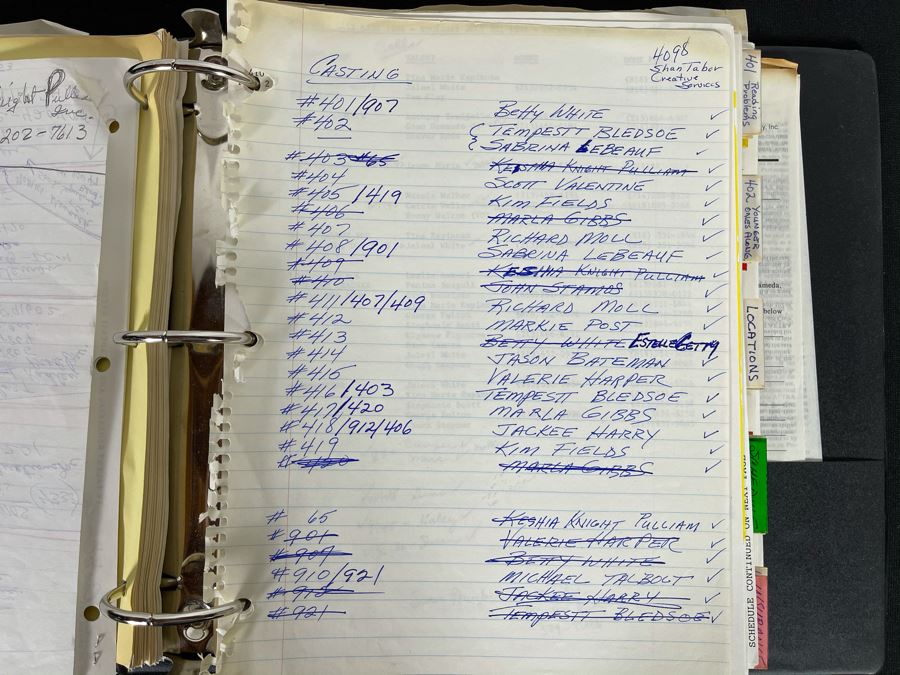 4098
Shan Tabor
Creative
Services
CASTING
#401/907 BETTY WHITE ✓
#402 { TEMPESTT BLEDSOE ✓
SABRINA LEBEAUF ✓
#403 465 KESHIA KNIGHT PULLIAM ✓
#404 SCOTT VALENTINE ✓
#405/419 KIM FIELDS ✓
#406 MARLA GIBBS ✓
#407 RICHARD MOLL ✓
#408/901 SABRINA LEBEAUF ✓
#409 KESHIA KNIGHT PULLIAM ✓
#410 JOHN STAMOS ✓
#411/407/409 RICHARD MOLL ✓
#412 MARKIE POST ✓
#413 BETTY WHITE ESTELLE GETTY ✓
#414 JASON BATEMAN ✓
#415 VALERIE HARPER ✓
#416/403 TEMPESTT BLEDSOE ✓
#417/420 MARLA GIBBS ✓
#418/912/406 JACKEE HARRY ✓
#419 KIM FIELDS ✓
#420 MARLA GIBBS ✓
# 65 KESHIA KNIGHT PULLIAM ✓
#901 VALERIE HARPER ✓
#907 BETTY WHITE ✓
#910/921 MICHAEL TALBOLT ✓
#912 JACKEE HARRY ✓
#921 TEMPESTT BLEDSOE ✓
202-7613
401 Reading
Problems
402 YOUNGER
ONES ALONG
LOCATIONS
SCHEDULE CONTINUED ON NEXT PAGE
y, Inc.
ameda,
below